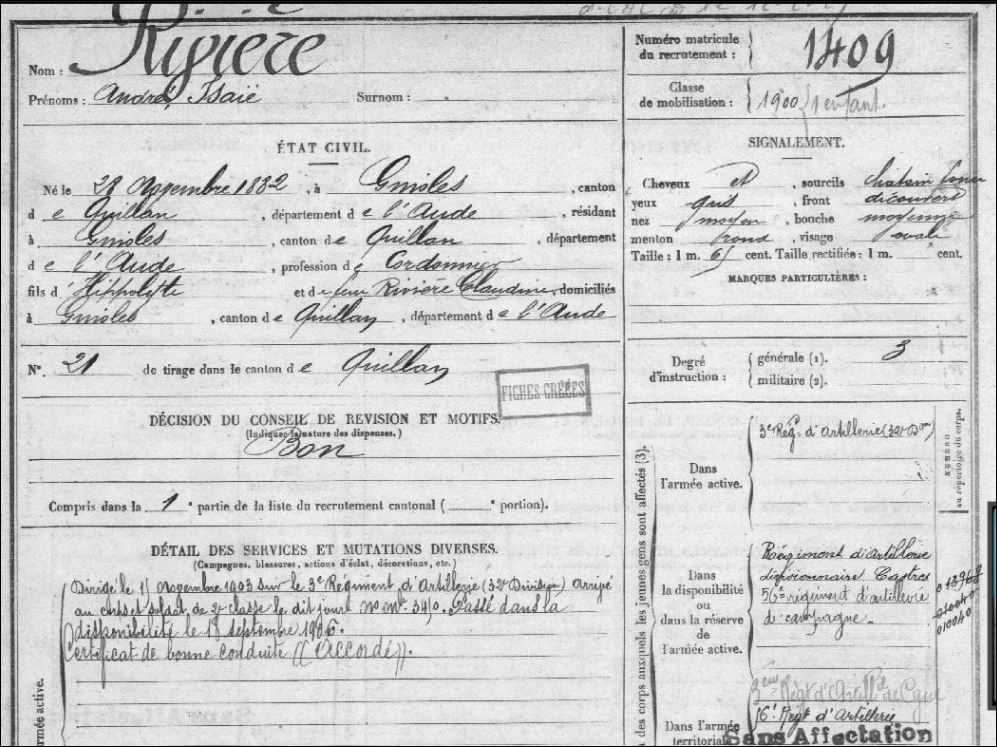 Nom : Rivière
Prénoms : André, Isaïe Surnom :
ÉTAT CIVIL.
Né le 28 Novembre 1882, à Ginoles, canton
d e Quillan, département d e l'Aude, résidant
à Ginoles, canton d e Quillan, département
d e l'Aude, profession d e Cordonnier
fils d' Hippolyte et de feue Rivière Claudine, domiciliés
à Ginoles, canton d e Quillan, département d e l'Aude
N°. 21 de tirage dans le canton d e Quillan
FICHES CRÉÉES
DÉCISION DU CONSEIL DE REVISION ET MOTIFS.
(Indiquer la nature des dispenses.)
Bon
Compris dans la 1e partie de la liste du recrutement cantonal ( e portion).
DÉTAIL DES SERVICES ET MUTATIONS DIVERSES.
(Campagnes, blessures, actions d'éclat, décorations, etc.)
Dirigé le 11 Novembre 1903 sur le 3e Régiment d'Artillerie (32e Division) arrivé
au corps et soldat de 2e classe le dit jour no mle 3410. Passé dans la
disponibilité le 18 septembre 1906.
Certificat de bonne conduite ((Accordé)).
armée active.
Numéro matricule
du recrutement : 1409
Classe
de mobilisation : 1900 1 enfant.
SIGNALEMENT.
Cheveux et, sourcils châtain
yeux gris, front découvert
nez moyen, bouche moyenne
menton rond, visage ovale
Taille : 1 m. 61 cent. Taille rectifiée : 1 m. cent.
MARQUES PARTICULIÈRES :
Degré
d'instruction :
générale (1). 3
militaire (2).
des corps auxquels les jeunes gens sont affectés (3).
Dans
l'armée active.
3e Régt d'Artillerie (32e Don)
NUMÉRO
au répertoire du corps.
Dans
la disponibilité
ou
dans la réserve
de
l'armée active.
Régiment d'Artillerie
divisionnaire Castres
56e régiment d'artillerie
de campagne.
010040
Dans l'armée
territoriale
Régt d'Artillie de Camp
Régt d'Artillerie
Sans Affectation